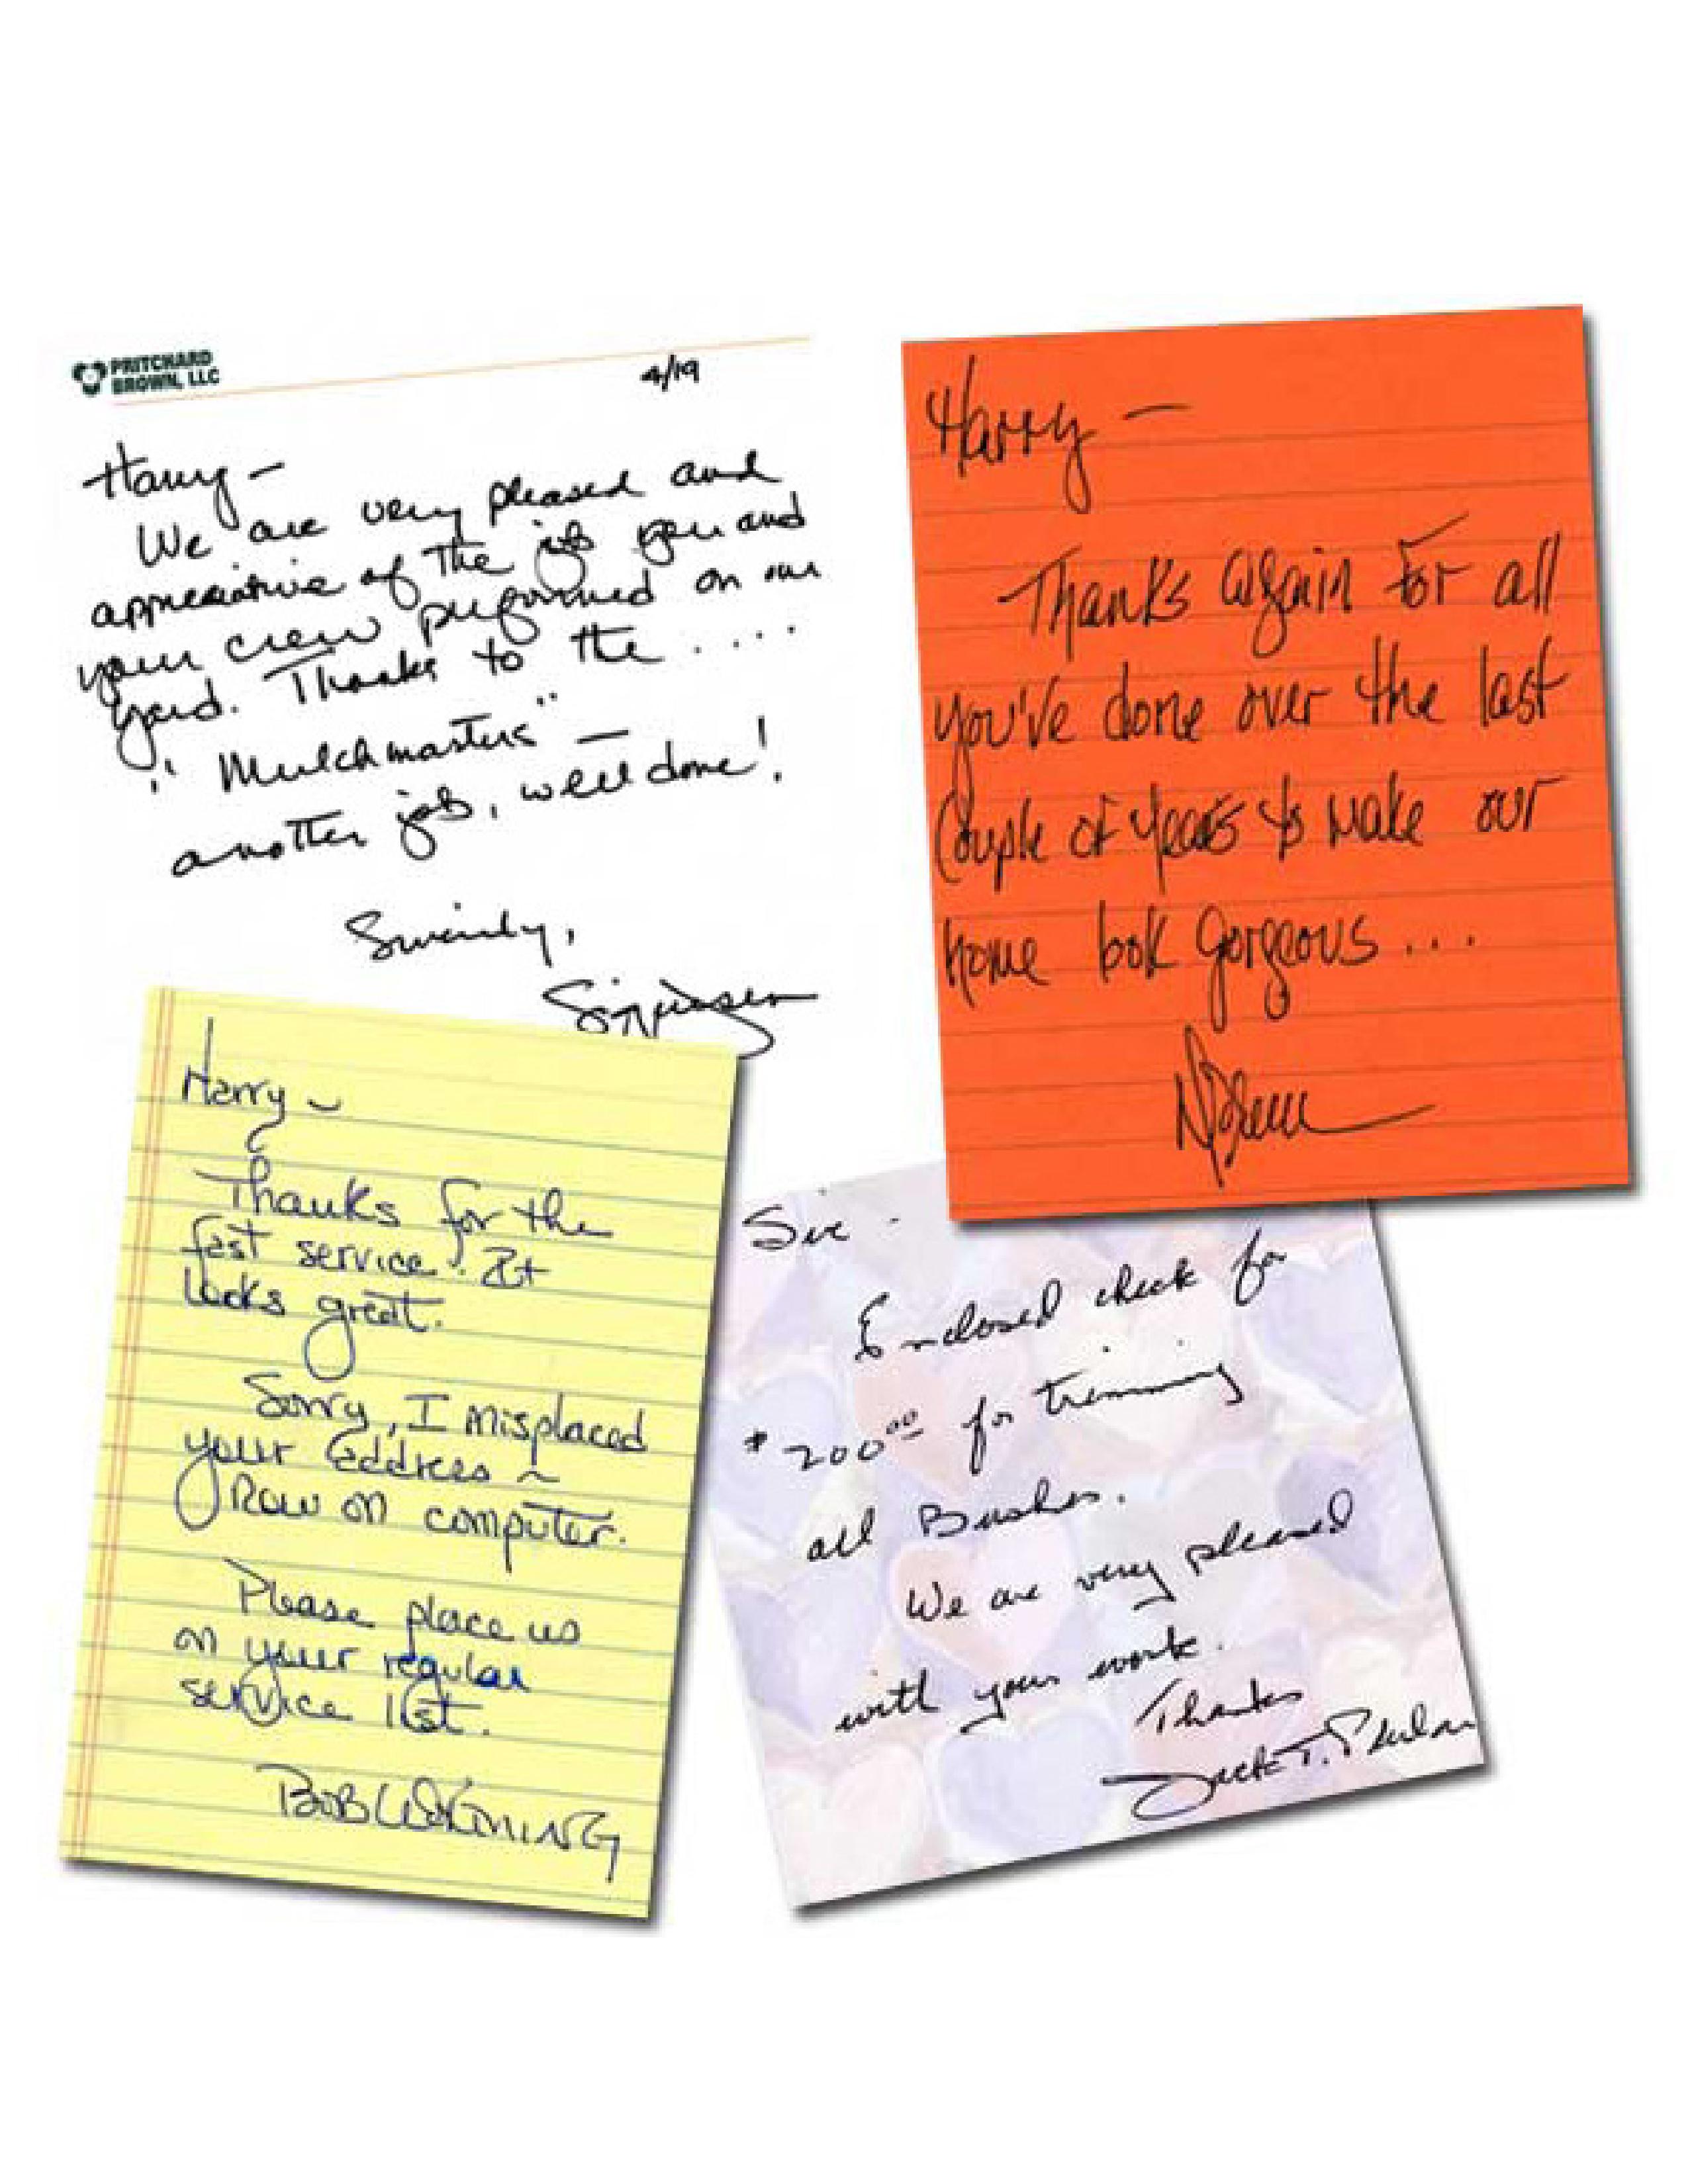 PRITCHARD
BROWN, LLC
4/19
Harry -
We are very pleased and
appreciative of the job you and
your crew preformed on our
yard. Thanks to the ....
"Mulchmasters" -
another job, well done!
Sincerely,
Harry -
Thanks Again For all
you've done over the last
Couple of Years to make our
home look gorgeous ...
Harry ~
Thanks for the
fast service. It
looks great.
Sorry, I misplaced
your address ~
Now on computer.
Please place us
on your regular
service list.
BOB
Sir -
Enclosed check for
$200.00 for trimming
all Bushes.
We are very pleased
with your work.
Thanks
Jack T.